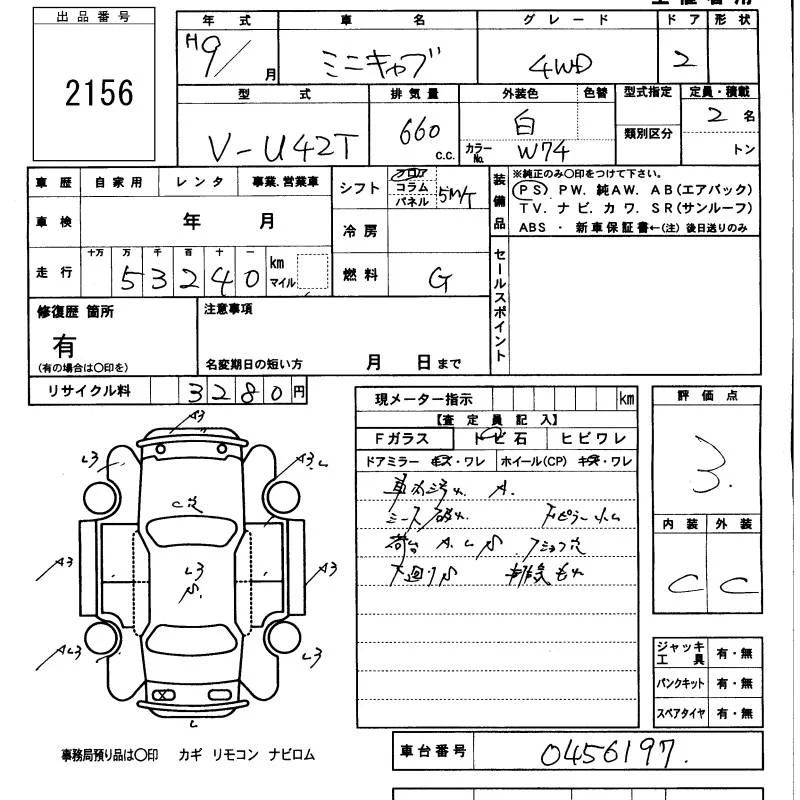 出品番号
2156
年式 車名 グレード ドア 形状
H9/月 ミニキャブ 4WD 2
型式 排気量 外装色 色替 型式指定 定員・積載
V-U42T 660 c.c. 白 カラーNo. W74 類別区分 2名
トン
車歴 自家用 レンタ 事業.営業車
車検 年 月
走行 十万 万 千 百 十 一 km マイル
53240
シフト フロア コラム パネル 5MT
冷房
燃料 G
装備品
※純正のみ○印をつけて下さい。
PS PW. 純AW. AB(エアバック)
TV. ナビ. カワ. SR(サンルーフ)
ABS ・ 新車保証書←(注) 後日送りのみ
セールスポイント
修復歴 箇所
有
(有の場合は○印を)
注意事項
名変期日の短い方 月 日まで
リサイクル料 3280円
現メーター指示 km
【査定員記入】
Fガラス トビ石 ヒビワレ
ドアミラー キズ・ワレ ホイール(CP) キズ・ワレ
車内汚れ A.
シート破れ
荷台 A.L.S
下廻りS 排気もれ
評価点
3.
内装 外装
C C
ジャッキ工具 有・無
パンクキット 有・無
スペアタイヤ 有・無
A3
L3
A3.L
C穴
L3
S.
A3
A3
AL3
L3
L
事務局預り品は○印 カギ リモコン ナビロム
車台番号 0456197.